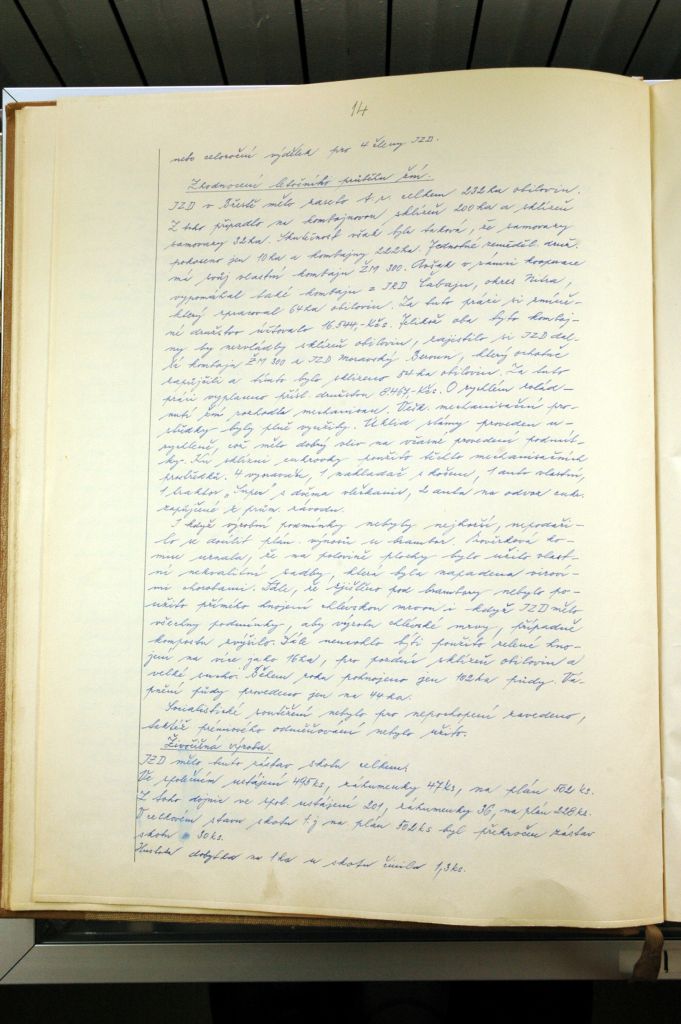 14
nebo celoroční výdělek pro 4 členy JZD.
Zhodnocení letošního průběhu žní.
JZD v Břestě mělo zaseto t.r. celkem 232 ha obilovin.
Z toho připadlo na kombajnovou sklizeň 200 ha a sklizeň
samovazy 32 ha. Skutečnost však byla taková, že samovazy
pokoseno jen 10 ha a kombajny 222 ha. Jednotné zeměděl. druž.
má svůj vlastní kombajn ŽM 300. Avšak v rámci kooperace
vypomáhal také kombajn z JRD Čabaju, okres Nitra,
který zpracoval 64 ha obilovin. Za tuto práci si zmíně-
né družstvo účtovalo 16.544,- Kčs. Jelikož oba tyto kombaj-
ny by nezvládly sklizeň obilovin, zajistilo si JZD dal-
ší kombajn ŽM 300 z JZD Moravský Beroun, který ochotně
zapůjčili a tímto bylo sklizeno 54 ha obilovin. Za tuto
práci vyplaceno přísl. družstvu 8.467,- Kčs. O rychlém zvlád-
nutí žní rozhodla mechanizace. Vešk. mechanisační pro-
středky byly plně využity. Úklid slámy proveden u-
rychleně, což mělo dobrý vliv na včasné provedení podmít-
ky. Ku sklizni cukrovky použito těchto mechanisačních
prostředků: 4 vyoravače, 1 nakladač s košem, 1 auto vlastní,
1 traktor „Super" s dvěma vlečkami, 2 auta na odvoz cukr.
zapůjčené z prům. závodu.
I když výrobní podmínky nebyly nejhorší, nepodaři-
lo se docílit plán. výnosu u brambor.
mise uznala, že na polovině plochy bylo užito vlast-
ní nekvalitní sadby, která byla napadena viroví-
mi chorobami. Dále, že zjištěno pod brambory nebylo po-
užito přímého hnojení chlévskou mrvou i když JZD mělo
všechny podmínky, aby výrobu chlévské mrvy, případně
kompostu zvýšilo. Dále nemohlo býti použito zelené hno-
jení na více jako 16 ha, pro pozdní sklizeň obilovin a
velké sucho. Během roka pohnojeno jen 102 ha půdy. Vá-
pnění půdy provedeno jen na 44 ha.
Socialistické soutěžení nebylo pro nepochopení zavedeno,
taktéž prémiového odměňování nebylo užito.
Živočišná výroba.
JZD mělo tento zástav skotu celkem:
Ve společném ustájení 495 ks, záhumenky 47 ks, na plán 502 ks.
Z toho dojnic ve spol. ustájení 201, záhumenky 36, na plán 228 ks.
V celkovém stavu skotu t.j. na plán 502 ks byl překročen zástav
skotu o 30 ks.
Hustota dobytka na 1 ha u skotu činila 1,3 ks.